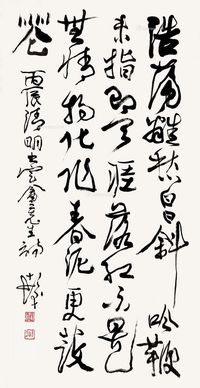 浩蕩離愁白日斜吟鞭
東指即天涯落紅不是
無情物化作春泥更護
花
丙辰清明書定盦先生詩